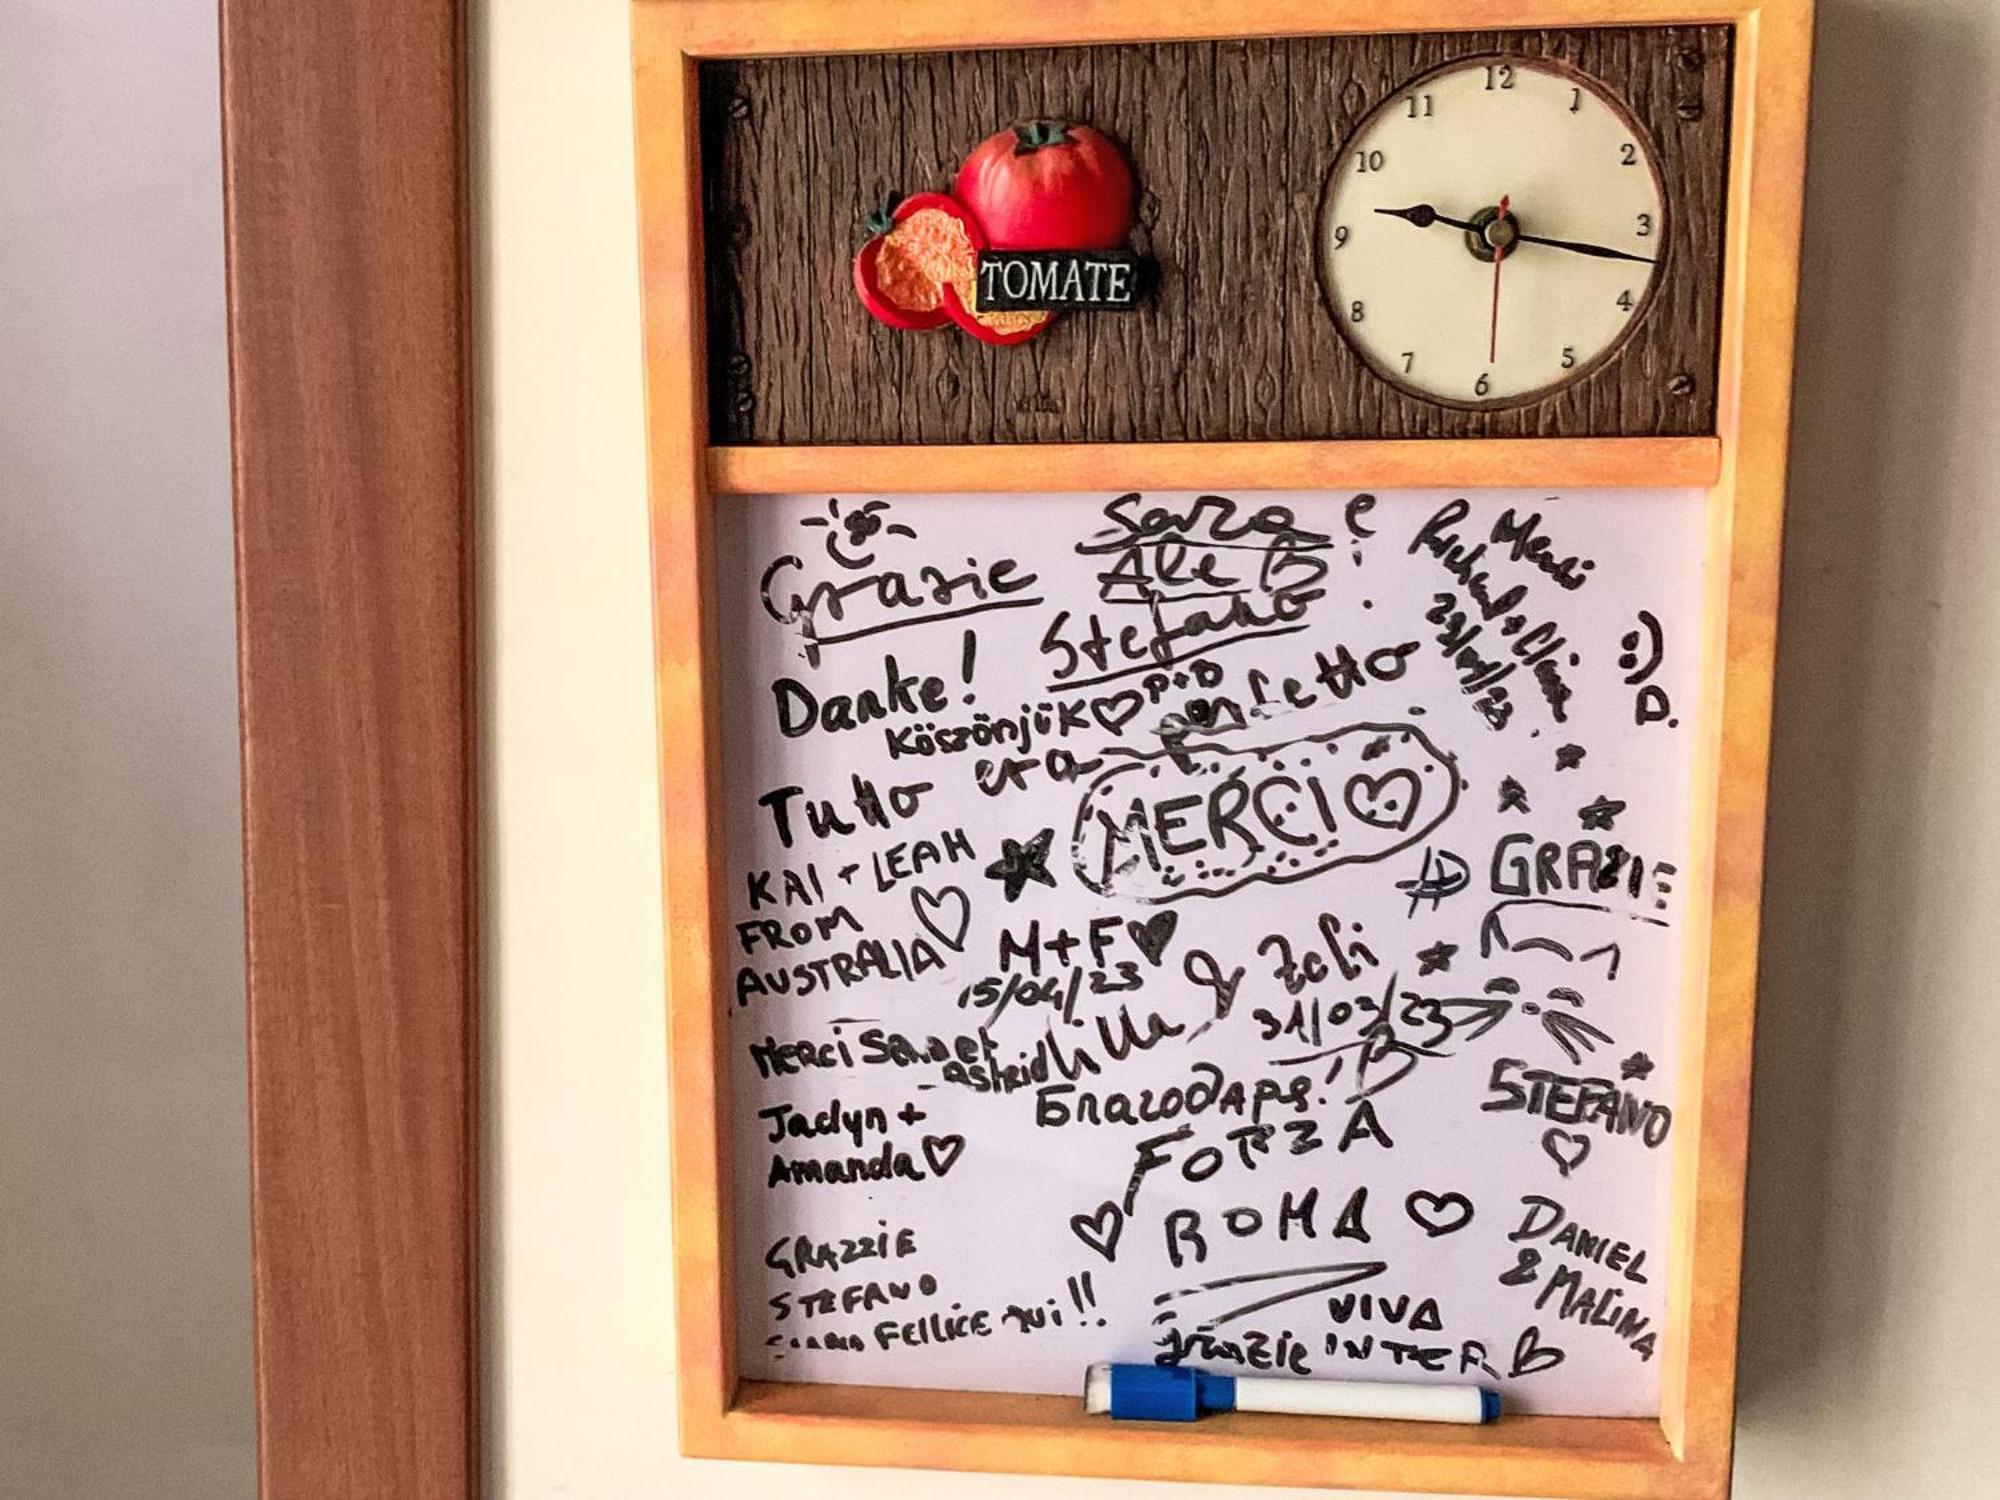 12
1
2
3
4
5
6
7
8
9
10
11
TOMATE
Grazie
Sara e
Ale
Stefano
Merci
Richard +
Danke!
Köszönjük P+D
Tutto era perfetto
MERCI
KAI + LEAH
FROM
AUSTRALIA
# GRAZIE
M+F
15/04/23
& Zoli
31/03/23
Lilla
Merci
Astrid
STEFANO
Благодаря!
Jaclyn +
Amanda
FORZA
ROMA
DANIEL
& MALINA
GRAZZIE
STEFANO
FELLICE qui!!
VIVA
grazie INTER